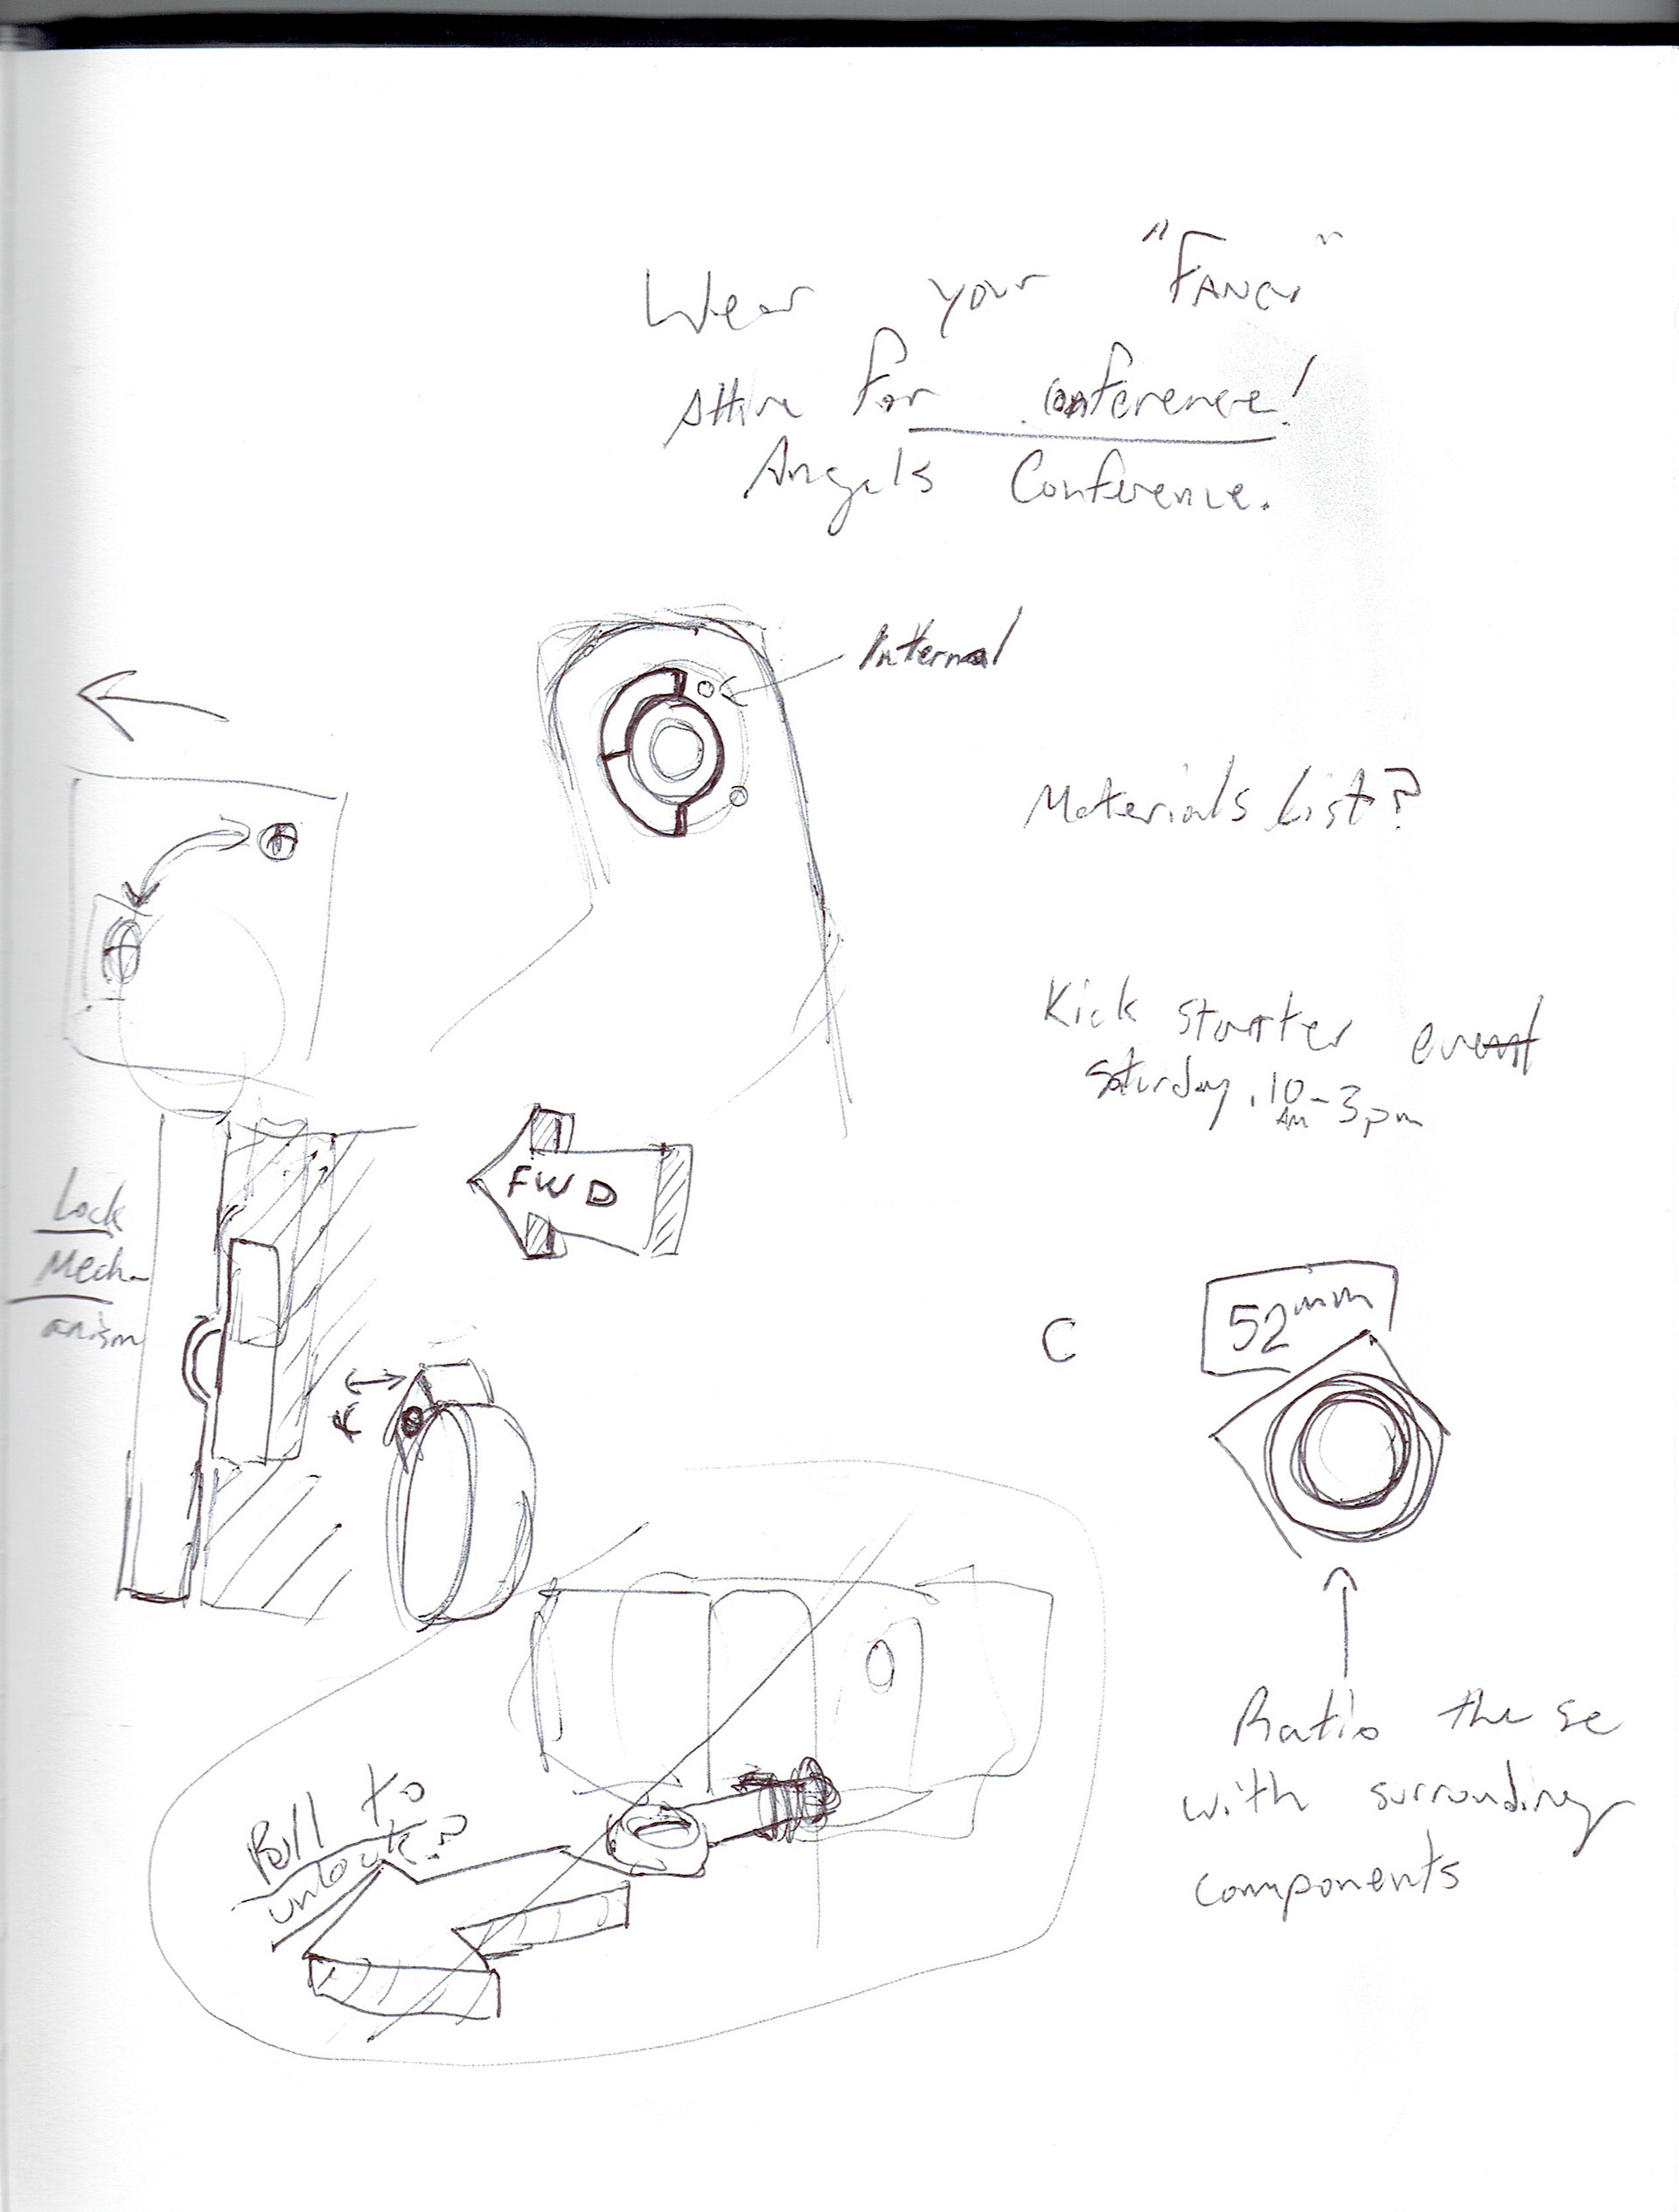 Wear your "FANCY"
Attire for conference!
Angels Conference.
Internal
Materials List?
Kick starter event
Saturday, 10 AM - 3pm
FWD
Lock
Mech-
anism
C
52mm
Pull to
unlock?
Ratio these
with surrounding
components